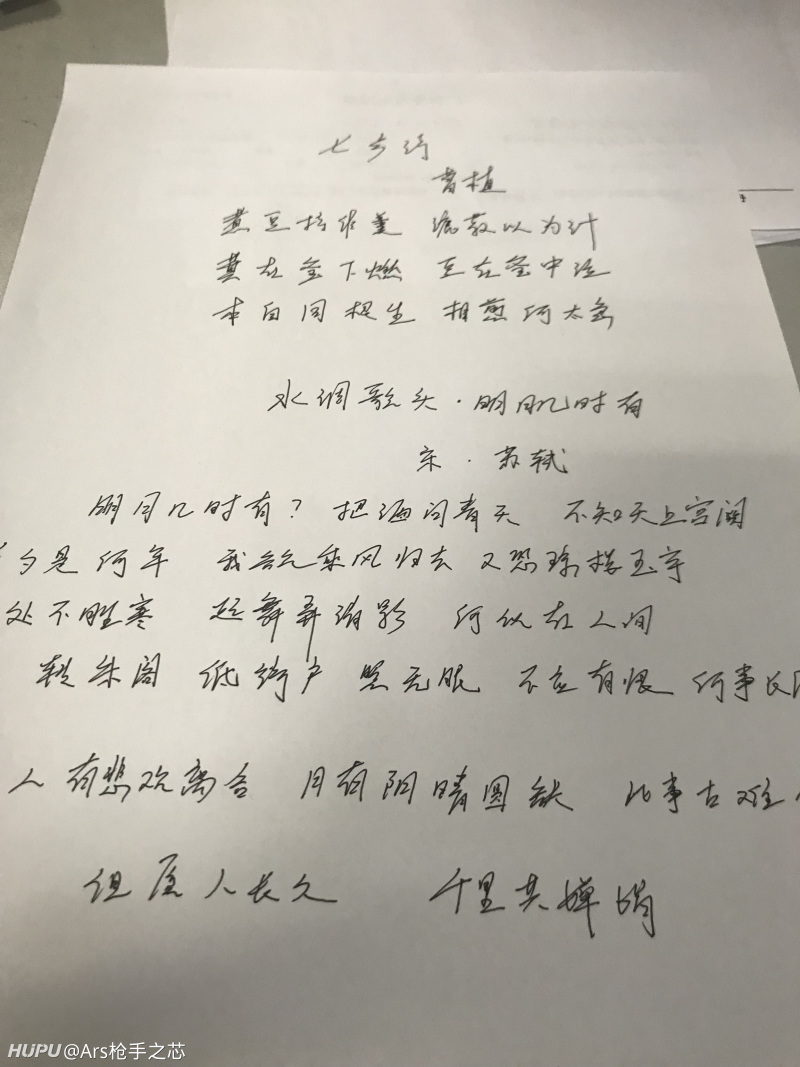 七步诗
曹植
煮豆持作羹 漉菽以为汁
萁在釜下燃 豆在釜中泣
本自同根生 相煎何太急
水调歌头·明月几时有
宋·苏轼
明月几时有？ 把酒问青天 不知天上宫阙
夕是何年 我欲乘风归去 又恐琼楼玉宇
处不胜寒 起舞弄清影 何似在人间
转朱阁 低绮户 照无眠 不应有恨 何事长
人有悲欢离合 月有阴晴圆缺 此事古难
但愿人长久 千里共婵娟
HUPU@Ars枪手之芯